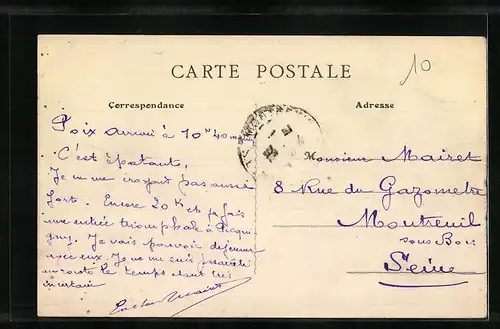 CARTE POSTALE
10
Correspondance
Adresse
Poix arrivé à 10 H 40 m
C'est épatant,
Je ne me croyais pas aussi
fort. Encore 20 K et je fais
une entrée triomphale à Picqui
gny. Je vais pouvoir déjeuner
avec eux. Je ne me suis pas arrêté
en route le temps étant très
incertain
Monsieur Mairet
8 Rue du Gazometre
Montreuil
sous Bois
Seine